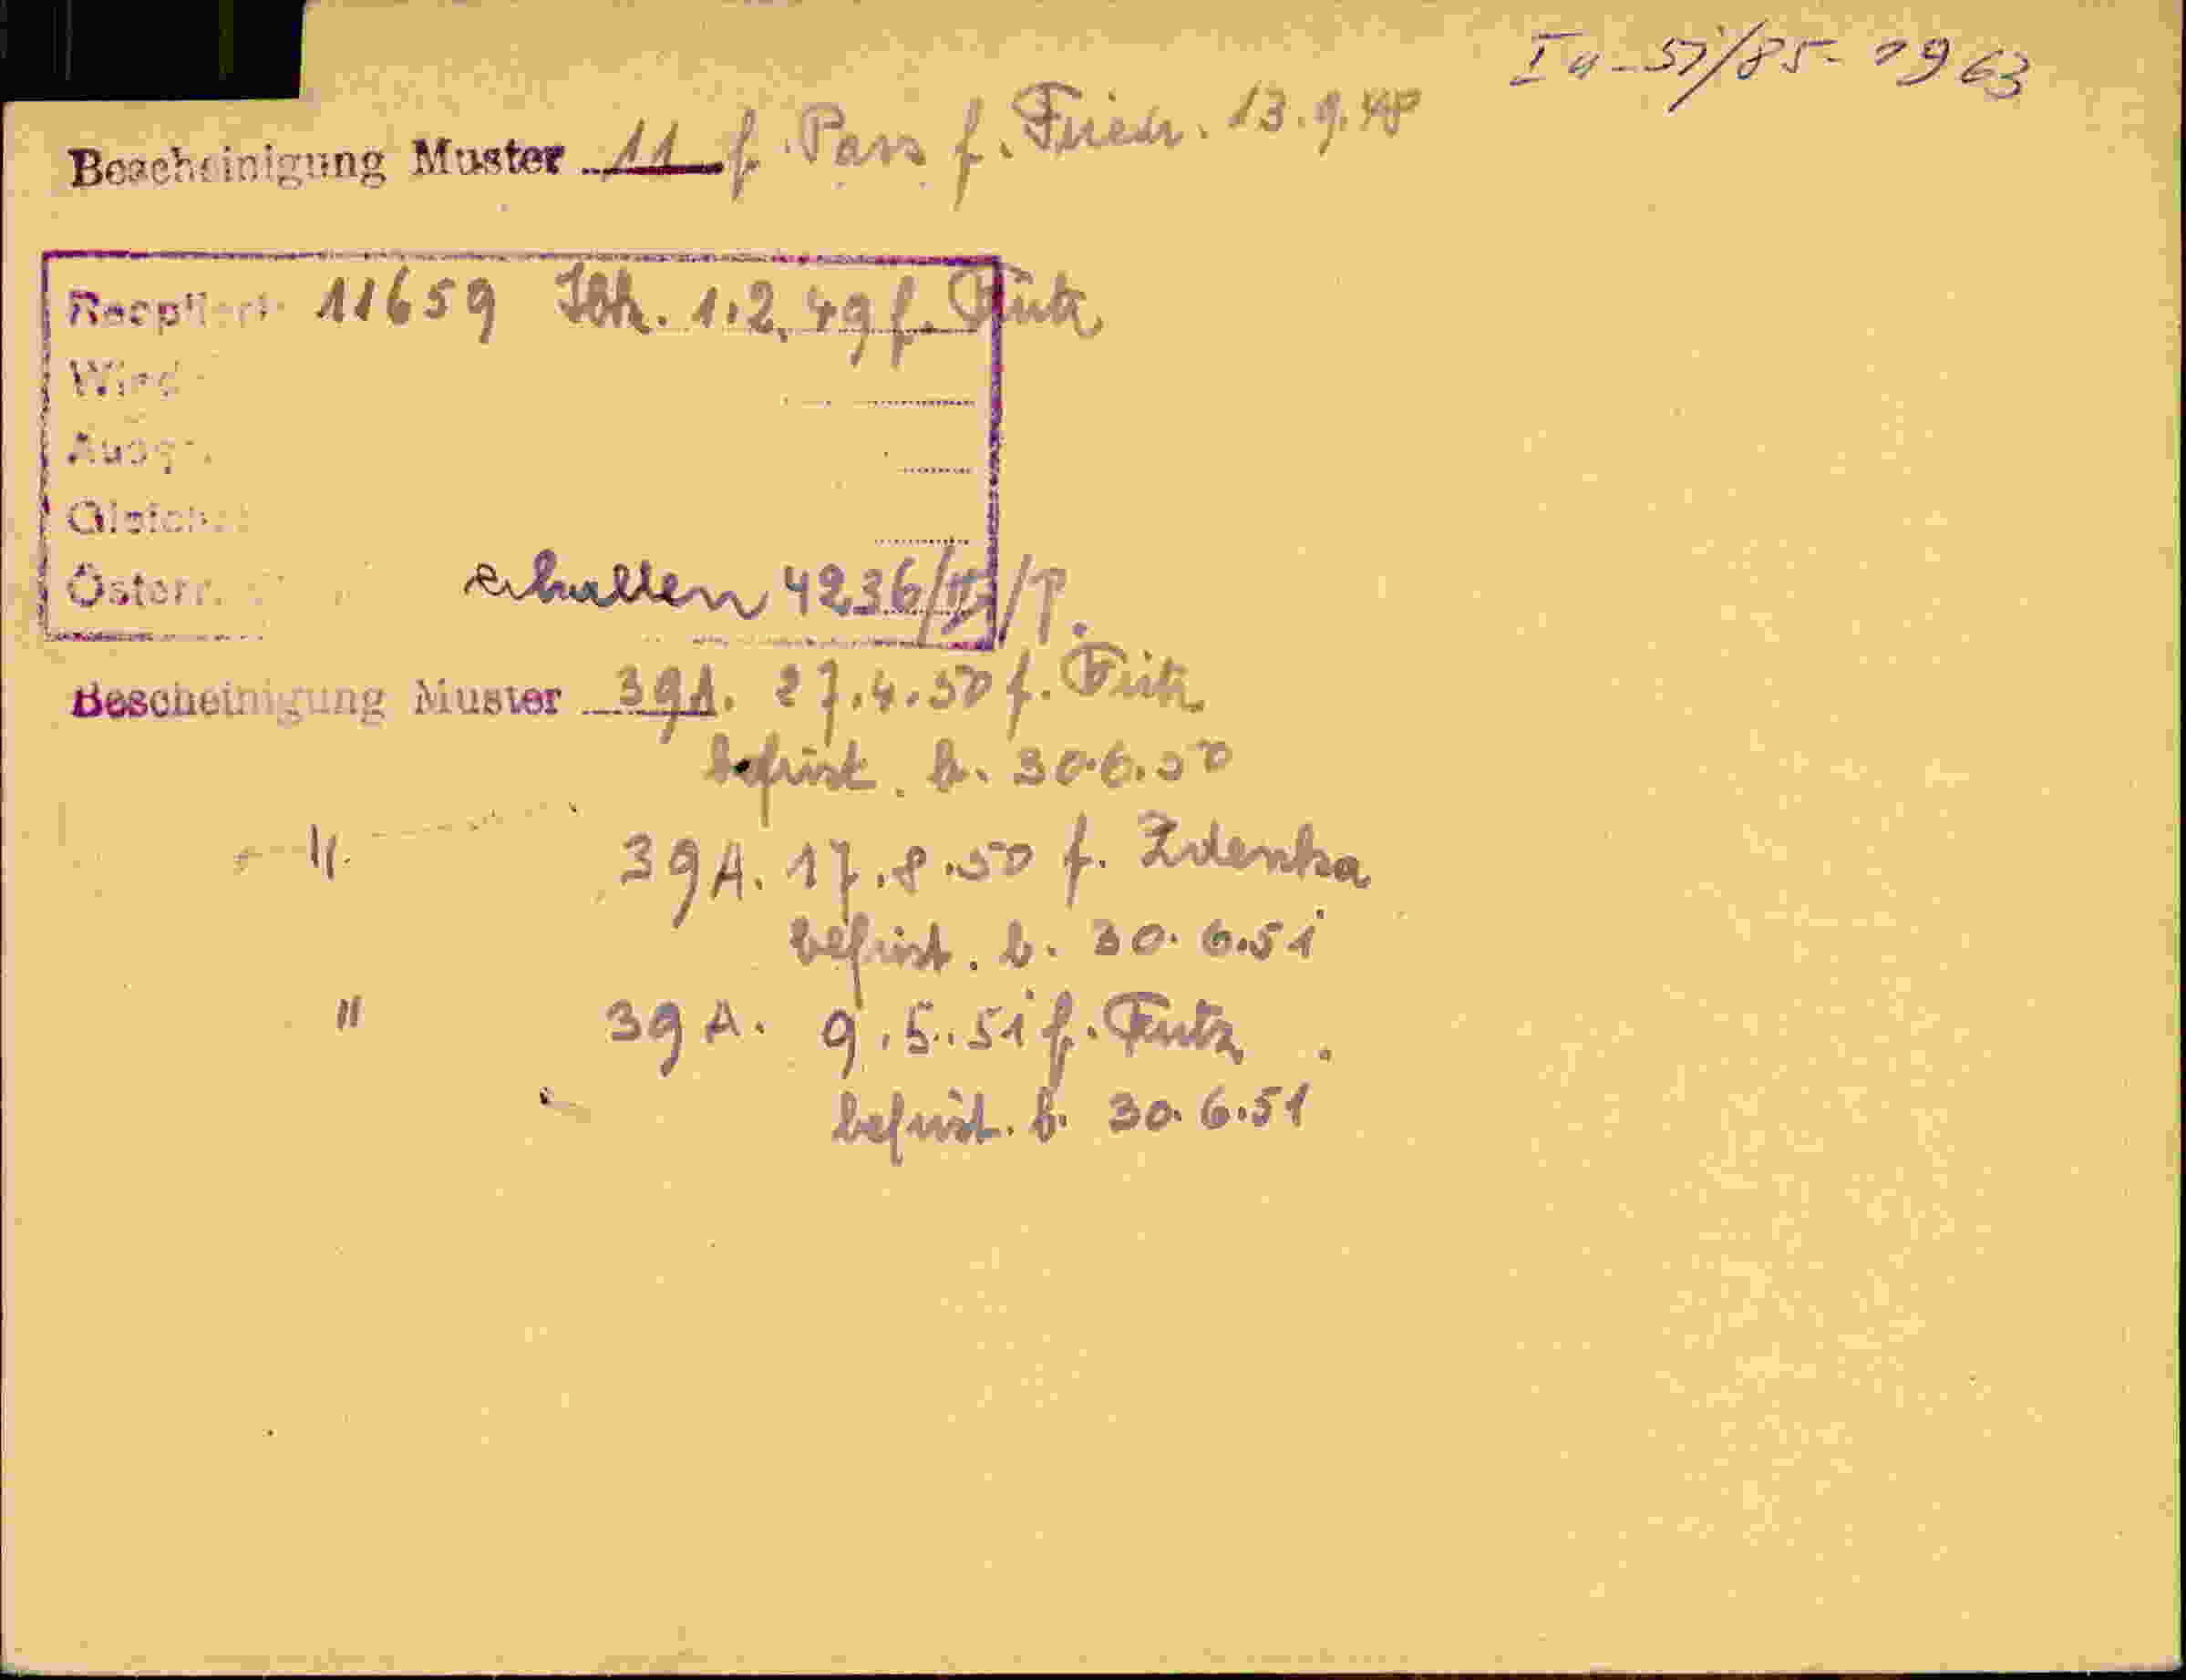 Ia-57/85-1963
Bescheinigung Muster 11 f. Pass f. Friedr. 13.9.48
11659 1.2.49 f. Fritz
Wird
Österr. erhalten 4236/II/P.
Bescheinigung Muster 39A. 27.4.50 f. Fritz
befrist. b. 30.6.50
" 39A. 17.8.50 f. Zdenka
befrist. b. 30.6.51
" 39A. 9.5.51 f. Fritz
befrist. b. 30.6.51